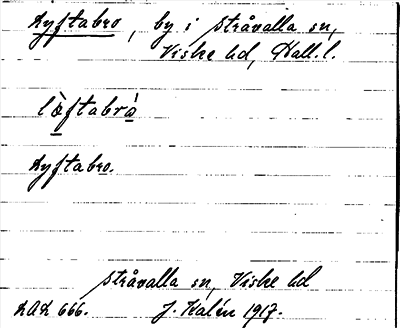 Lyftabro, by i Stråvalla sn,
Viske hd, Hall. l.
lö̀ftabrà
Lyftabro.
Stråvalla sn, Viske hd
LAL 666. J. Kalén 1917.